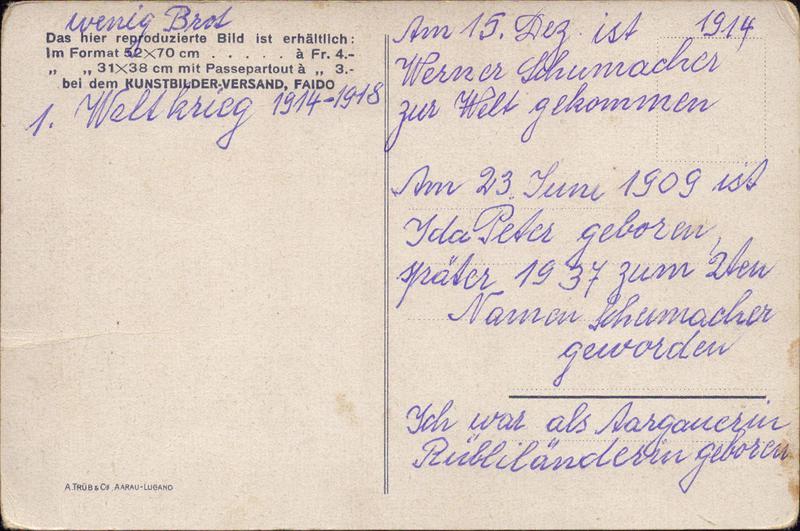 wenig Brot
Das hier reproduzierte Bild ist erhältlich:
Im Format 52×70 cm . . . . . à Fr. 4.-
„ „ 31×38 cm mit Passepartout à „ 3.-
bei dem KUNSTBILDER-VERSAND, FAIDO
1. Weltkrieg 1914-1918
A. TRÜB & Cie AARAU-LUGANO
Am 15. Dez. ist 1914
Werner Schumacher
zur Welt gekommen
Am 23. Juni 1909 ist
Ida Peter geboren,
später 1937 zum 2ten
Namen Schumacher
geworden
Ich war als Aargauerin
Rübliländerin geboren